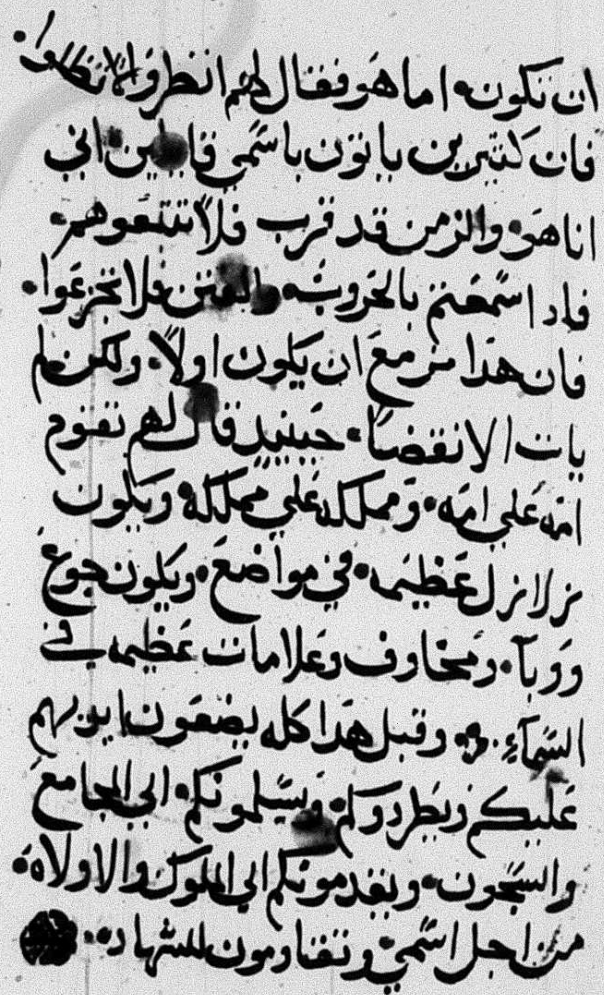 ان تكون اما هو فقال لهم انظروا لا تظلوا
فان كثيرين ياتون باسمي قايلين اني
انا هو والزمن قد قرب فلا تتبعوهم
فادا سمعتم بالحروب والفتن فلا تجزعوا
فان هدا مزمع ان يكون اولا ولكن لم
يات الانقضا حينيد قال لهم تقوم
امه علي امه ومملكه علي مملكه ويكون
زلازل عظيمه في مواضع ويكون جوع
ووبآ ومخاوف وعلامات عظيمه في
السمآء وقبل هدا كله يضعون ايديهم
عليكم ويطردوكم ويسلمونكم الي المجامع
والسجون ويقدمونكم الي الملوك والاولاه
من اجل اسمي وتقاومون للشهاده